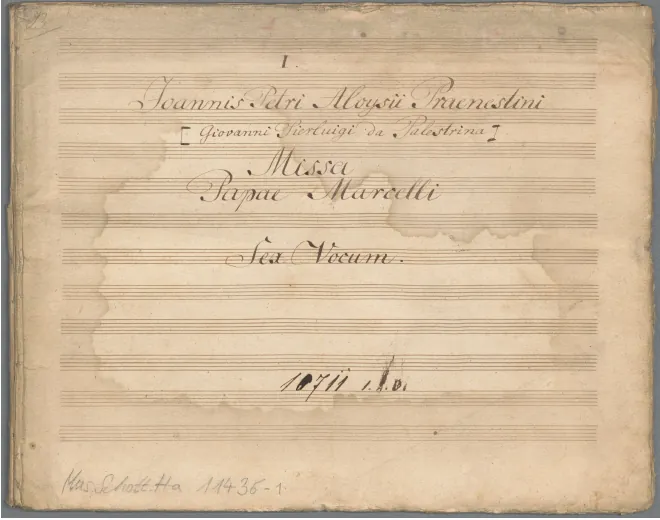 I.
Joannis Petri Aloysii Praenestini
[Giovanni Pierluigi da Palestrina]
Missa
Papae Marcelli
Sex Vocum.
Mus. Schott. Ha 11436-1